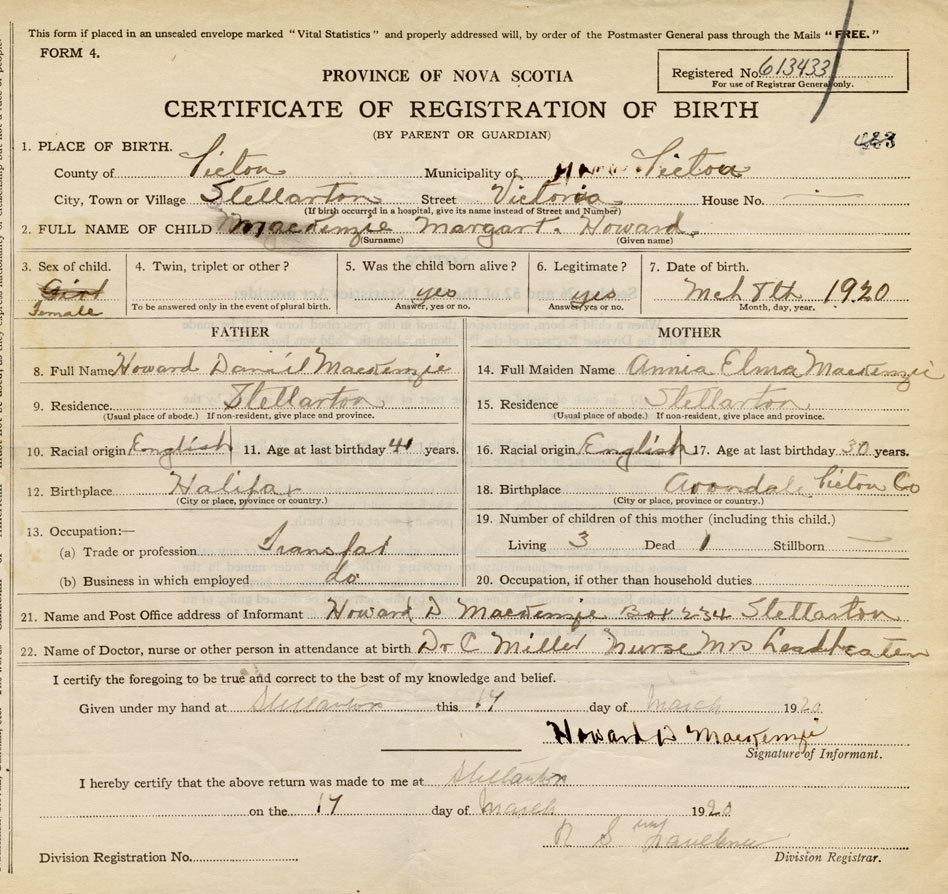 This form if placed in an unsealed envelope marked "Vital Statistics" and properly addressed will, by order of the Postmaster General pass through the Mails "FREE."
FORM 4.
Registered No. 613433
For use of Registrar General only.
PROVINCE OF NOVA SCOTIA
CERTIFICATE OF REGISTRATION OF BIRTH
(BY PARENT OR GUARDIAN)
1. PLACE OF BIRTH.
County of Pictou Municipality of Pictou
City, Town or Village Stellarton Street Victoria House No. —
(If birth occurred in a hospital, give its name instead of Street and Number)
2. FULL NAME OF CHILD MacKenzie Margart. Howard.
(Surname) (Given name)
3. Sex of child. Girl Female
4. Twin, triplet or other?
To be answered only in the event of plural birth.
5. Was the child born alive? yes
Answer, yes or no.
6. Legitimate? yes
Answer, yes or no.
7. Date of birth. Mch 8th 1920
Month, day, year.
FATHER
8. Full Name Howard Daniil MacKenzie
9. Residence. Stellarton
(Usual place of abode.) If non-resident, give place and province.
10. Racial origin English 11. Age at last birthday 41 years.
12. Birthplace Halifax
(City or place, province or country.)
13. Occupation:—
(a) Trade or profession
(b) Business in which employed do
MOTHER
14. Full Maiden Name Annia Elma MacKenzie
15. Residence Stellarton
(Usual place of abode.) If non-resident, give place and province.
16. Racial origin English 17. Age at last birthday 30 years.
18. Birthplace Avondale Pictou Co
(City or place, province or country.)
19. Number of children of this mother (including this child.)
Living 3 Dead 1 Stillborn —
20. Occupation, if other than household duties
21. Name and Post Office address of Informant Howard D MacKenzie Box 234 Stellarton
22. Name of Doctor, nurse or other person in attendance at birth Dr C Miller Nurse Mrs
I certify the foregoing to be true and correct to the best of my knowledge and belief.
Given under my hand at Stellarton this 17 day of March 1920
Howard D MacKenzie
Signature of Informant.
I hereby certify that the above return was made to me at Stellarton
on the 17 day of March 1920
R S Faulkner
Division Registration No.
Division Registrar.